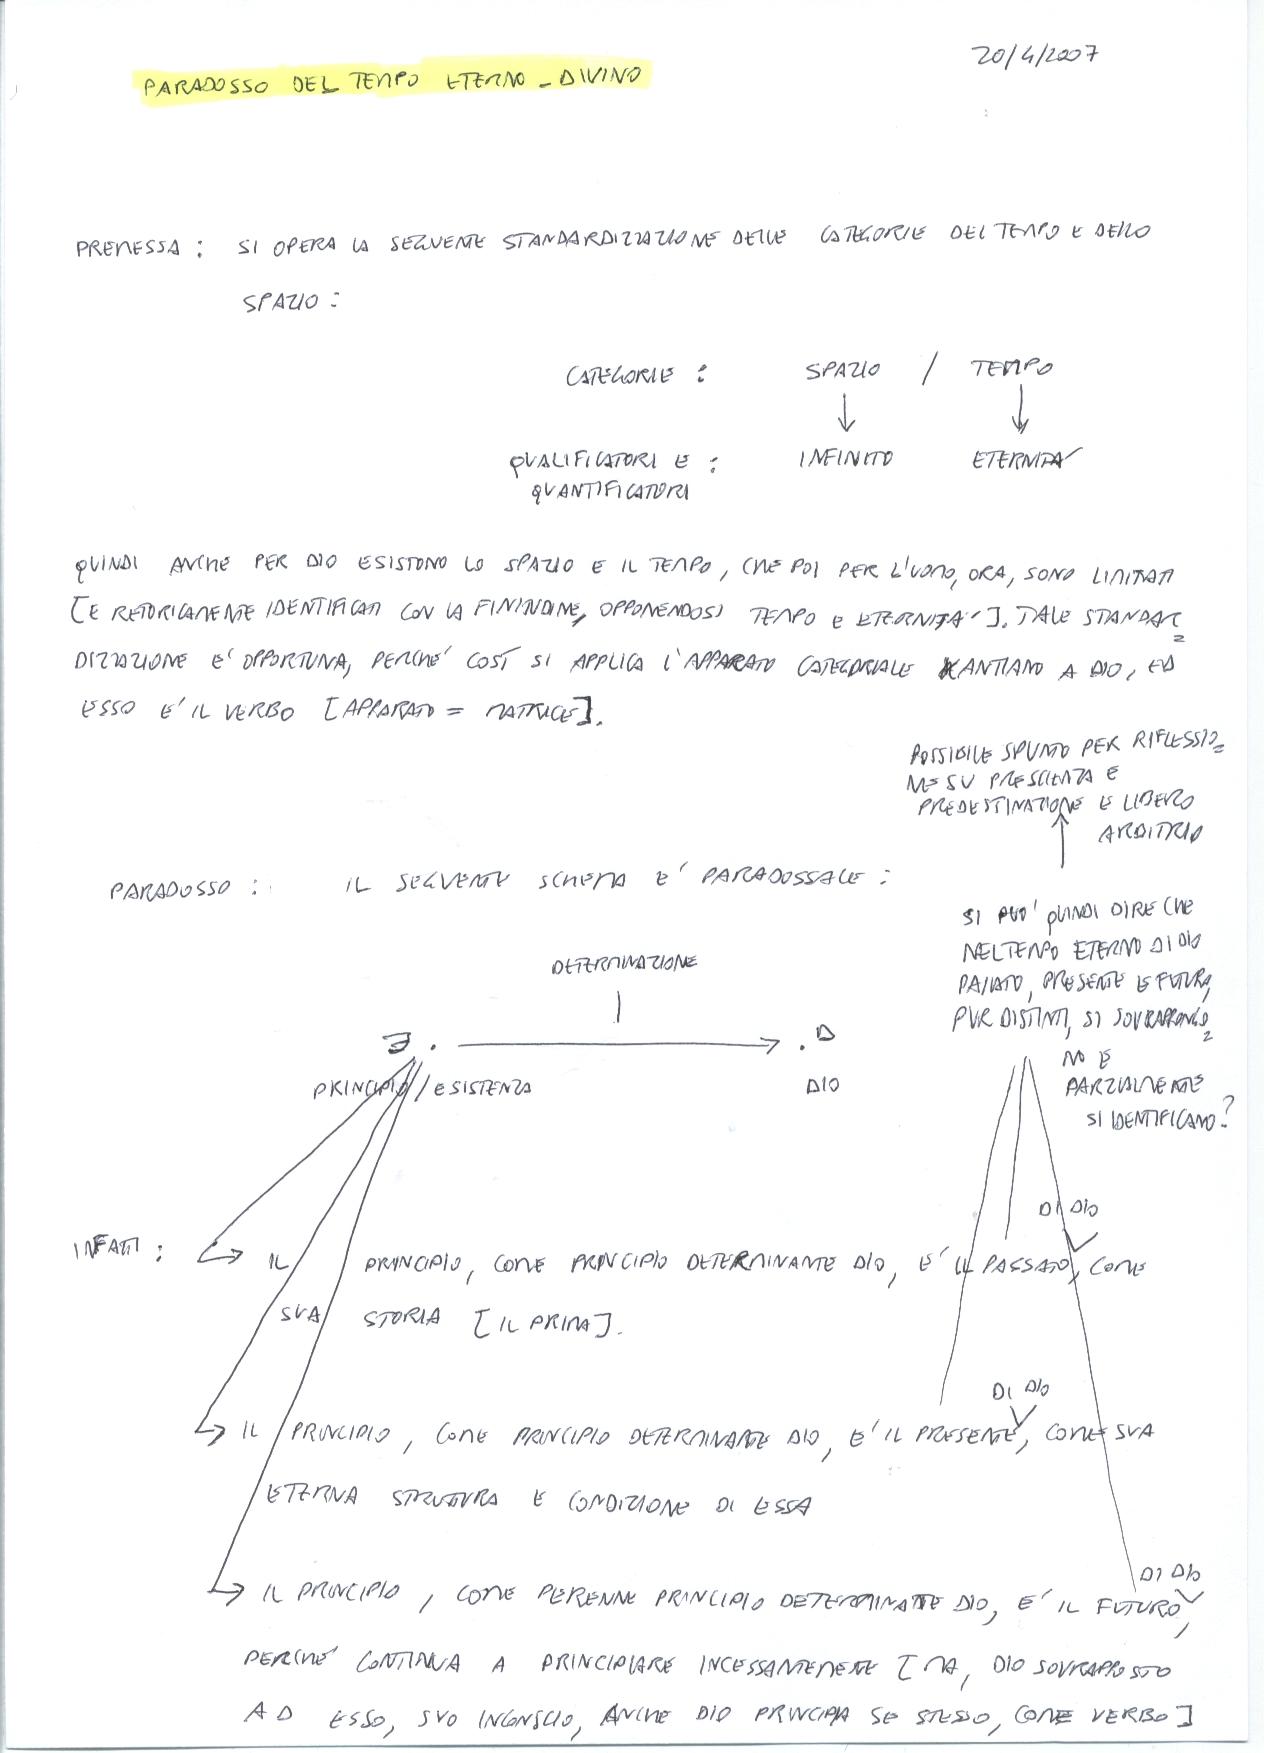 20/4/2007
PARADOSSO DEL TEMPO ETERNO - DIVINO
PREMESSA : SI OPERA LA SEGUENTE STANDARDIZZAZIONE DELLE CATEGORIE DEL TEMPO E DELLO
SPAZIO :
CATEGORIE : SPAZIO / TEMPO
QUALIFICATORI E : INFINITO ETERNITA'
QUANTIFICATORI
QUINDI ANCHE PER DIO ESISTONO LO SPAZIO E IL TEMPO, CHE POI PER L'UOMO, ORA, SONO LIMITATI
[E RETORICAMENTE IDENTIFICATI CON LA FINITUDINE, OPPONENDOSI TEMPO E ETERNITA']. TALE STANDAR=
DIZZAZIONE E' OPPORTUNA, PERCHE' COSÌ SI APPLICA L'APPARATO CATEGORIALE KANTIANO A DIO, ED
ESSO E' IL VERBO [APPARATO = MATRICE].
POSSIBILE SPUNTO PER RIFLESSIO=
NE SU PRESCIENZA E
PREDESTINAZIONE E LIBERO
ARBITRIO
PARADOSSO : IL SEGUENTE SCHEMA E' PARADOSSALE :
SI PUO' QUINDI DIRE CHE
NEL TEMPO ETERNO DI DIO
PASSATO, PRESENTE E FUTURO,
PUR DISTINTI, SI SOVRAPPONGO=
NO E
PARZIALMENTE
SI IDENTIFICANO?
DETERMINAZIONE
∃ . . D
PRINCIPIO / ESISTENZA DIO
DI DIO
INFATTI : IL PRINCIPIO, COME PRINCIPIO DETERMINANTE DIO, E' IL PASSATO, COME
SUA STORIA [IL PRIMA].
DI DIO
IL PRINCIPIO, COME PRINCIPIO DETERMINANTE DIO, E' IL PRESENTE, COME SUA
ETERNA STRUTTURA E CONDIZIONE DI ESSA
DI DIO
IL PRINCIPIO, COME PERENNE PRINCIPIO DETERMINANTE DIO, E' IL FUTURO,
PERCHE' CONTINUA A PRINCIPIARE INCESSANTEMENTE [MA, DIO SOVRAPPOSTO
AD ESSO, SUO INCONSCIO, ANCHE DIO PRINCIPIA SE STESSO, COME VERBO]